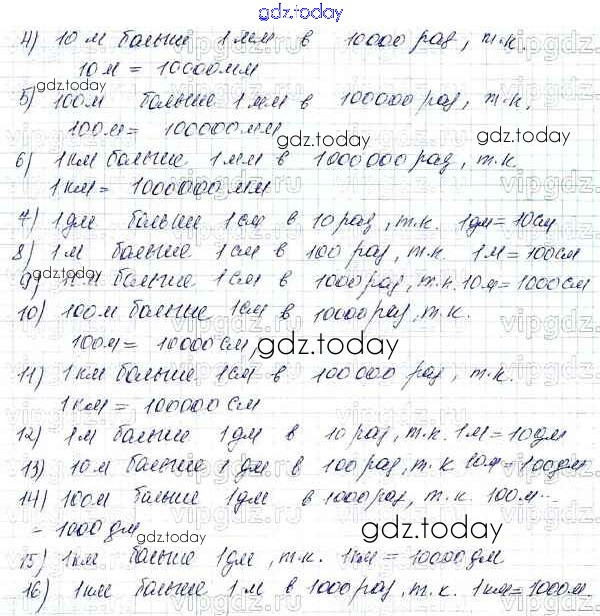 gdz.today
4) 10 м больше 1 мм в 10000 раз, т.к.
10 м = 10000 мм
gdz.today
5) 100 м больше 1 мм в 100000 раз, т.к.
100 м = 100000 мм
gdz.today gdz.today
6) 1 км больше 1 мм в 1000000 раз, т.к.
1 км = 1000000 мм
7) 1 дм больше 1 см в 10 раз, т.к. 1 дм = 10 см
8) 1 м больше 1 см в 100 раз, т.к. 1 м = 100 см
gdz.today
9) больше 1 см в 1000 раз, т.к. 10 м = 1000 см
10) 100 м больше 1 см в 10000 раз, т.к.
100 м = 10000 см
gdz.today
11) 1 км больше 1 см в 100000 раз, т.к.
1 км = 100000 см
gdz.today
12) 1 м больше 1 дм в 10 раз, т.к. 1 м = 10 дм
13) 10 м больше 1 дм в 100 раз, т.к. 10 м = 100 дм
gdz.today gdz.today
14) 100 м больше 1 дм в 1000 раз, т.к. 100 м
= 1000 дм
gdz.today
15) 1 км больше 1 дм, т.к. 1 км = 10000 дм
16) 1 км больше 1 м в 1000 раз, т.к. 1 км = 1000 м.